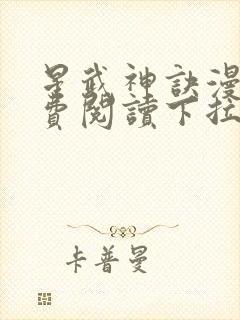 星武神訣漫
費閱讀下拉
卡普曼